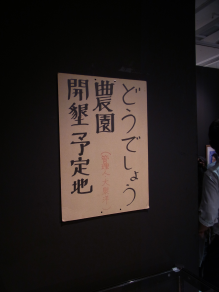 どうでしょう
農園
開墾予定地